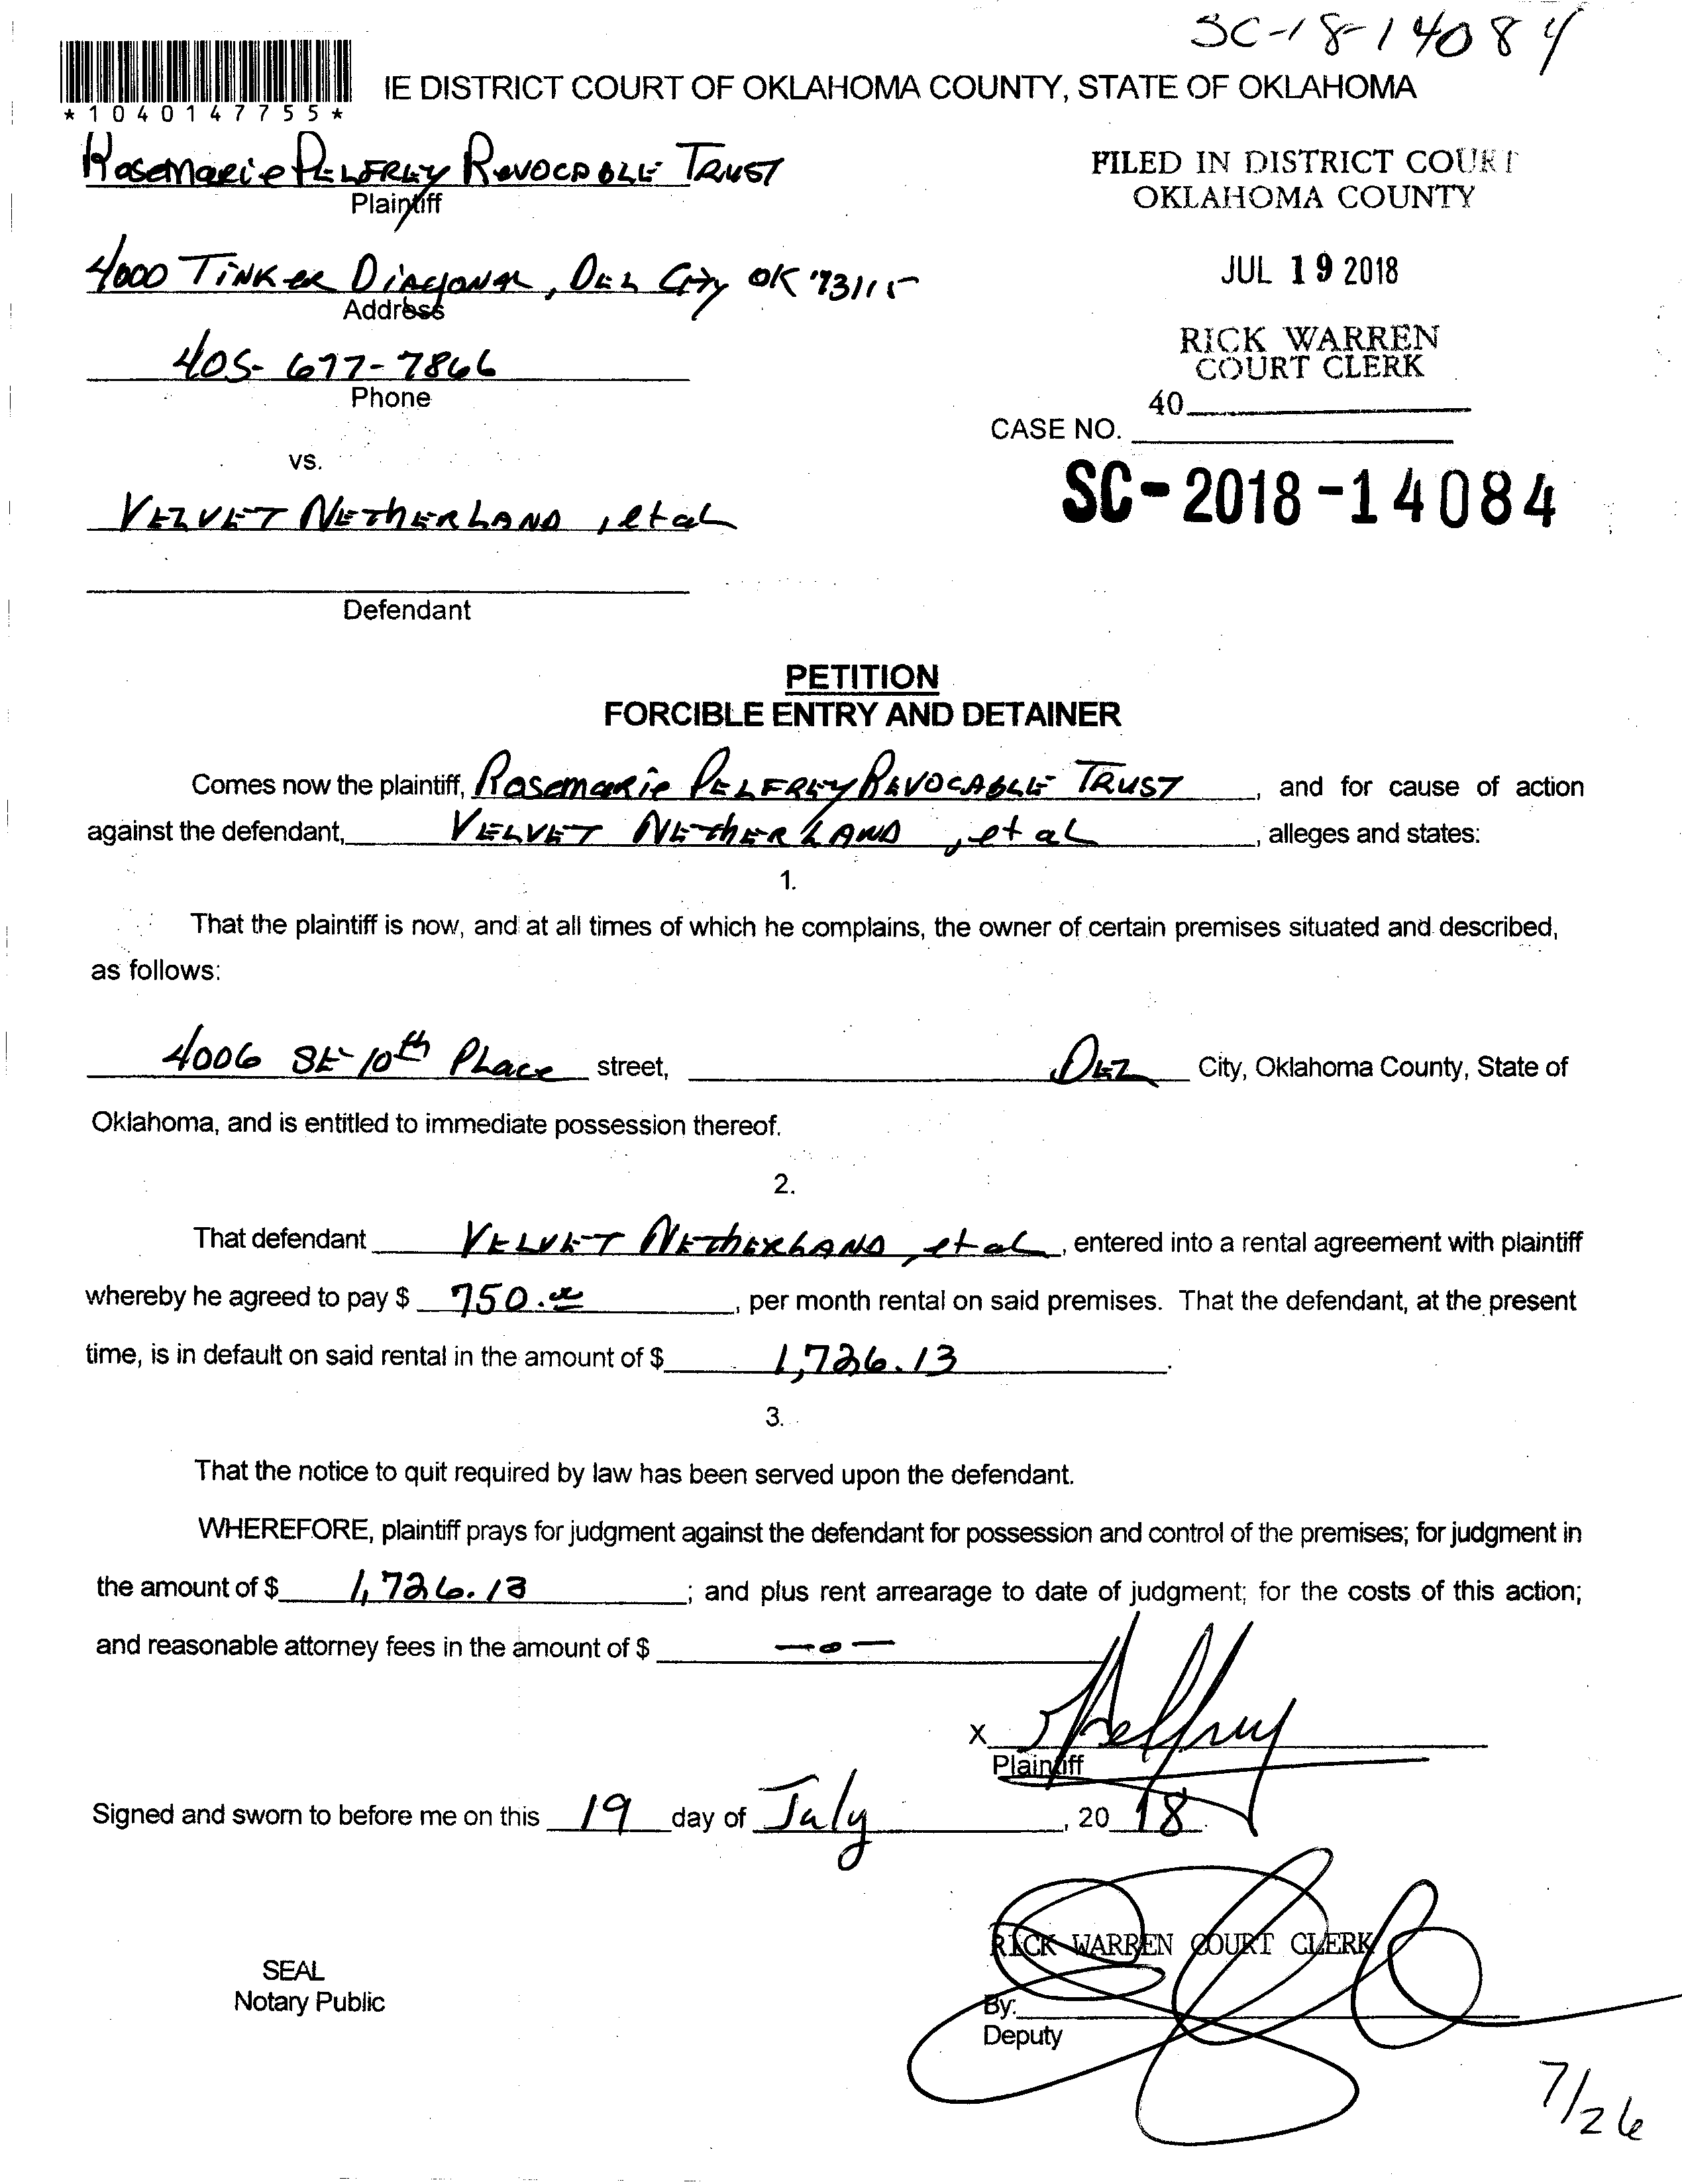 SC-18-14084
*1040147755*
IE DISTRICT COURT OF OKLAHOMA COUNTY, STATE OF OKLAHOMA
Rosemarie Pelfrey Revocable Trust
Plaintiff
FILED IN DISTRICT COURT
OKLAHOMA COUNTY
4000 Tinker Diagonal, Del City OK 73115
Address
JUL 19 2018
405-677-7866
Phone
RICK WARREN
COURT CLERK
40
CASE NO.
vs.
SC-2018-14084
Velvet Netherland, et al
Defendant
PETITION
FORCIBLE ENTRY AND DETAINER
Comes now the plaintiff, Rosemarie Pelfrey Revocable Trust, and for cause of action
against the defendant, Velvet Netherland, et al, alleges and states:
1.
That the plaintiff is now, and at all times of which he complains, the owner of certain premises situated and described,
as follows:
4006 SE 10th Place street, Del City, Oklahoma County, State of
Oklahoma, and is entitled to immediate possession thereof.
2.
That defendant Velvet Netherland, et al, entered into a rental agreement with plaintiff
whereby he agreed to pay $ 750.00, per month rental on said premises. That the defendant, at the present
time, is in default on said rental in the amount of $ 1,726.13.
3.
That the notice to quit required by law has been served upon the defendant.
WHEREFORE, plaintiff prays for judgment against the defendant for possession and control of the premises; for judgment in
the amount of $ 1,726.13; and plus rent arrearage to date of judgment; for the costs of this action;
and reasonable attorney fees in the amount of $ -0-
X
Plaintiff
Signed and sworn to before me on this 19 day of July, 20 18.
RICK WARREN COURT CLERK
SEAL
Notary Public
By:
Deputy
7/26